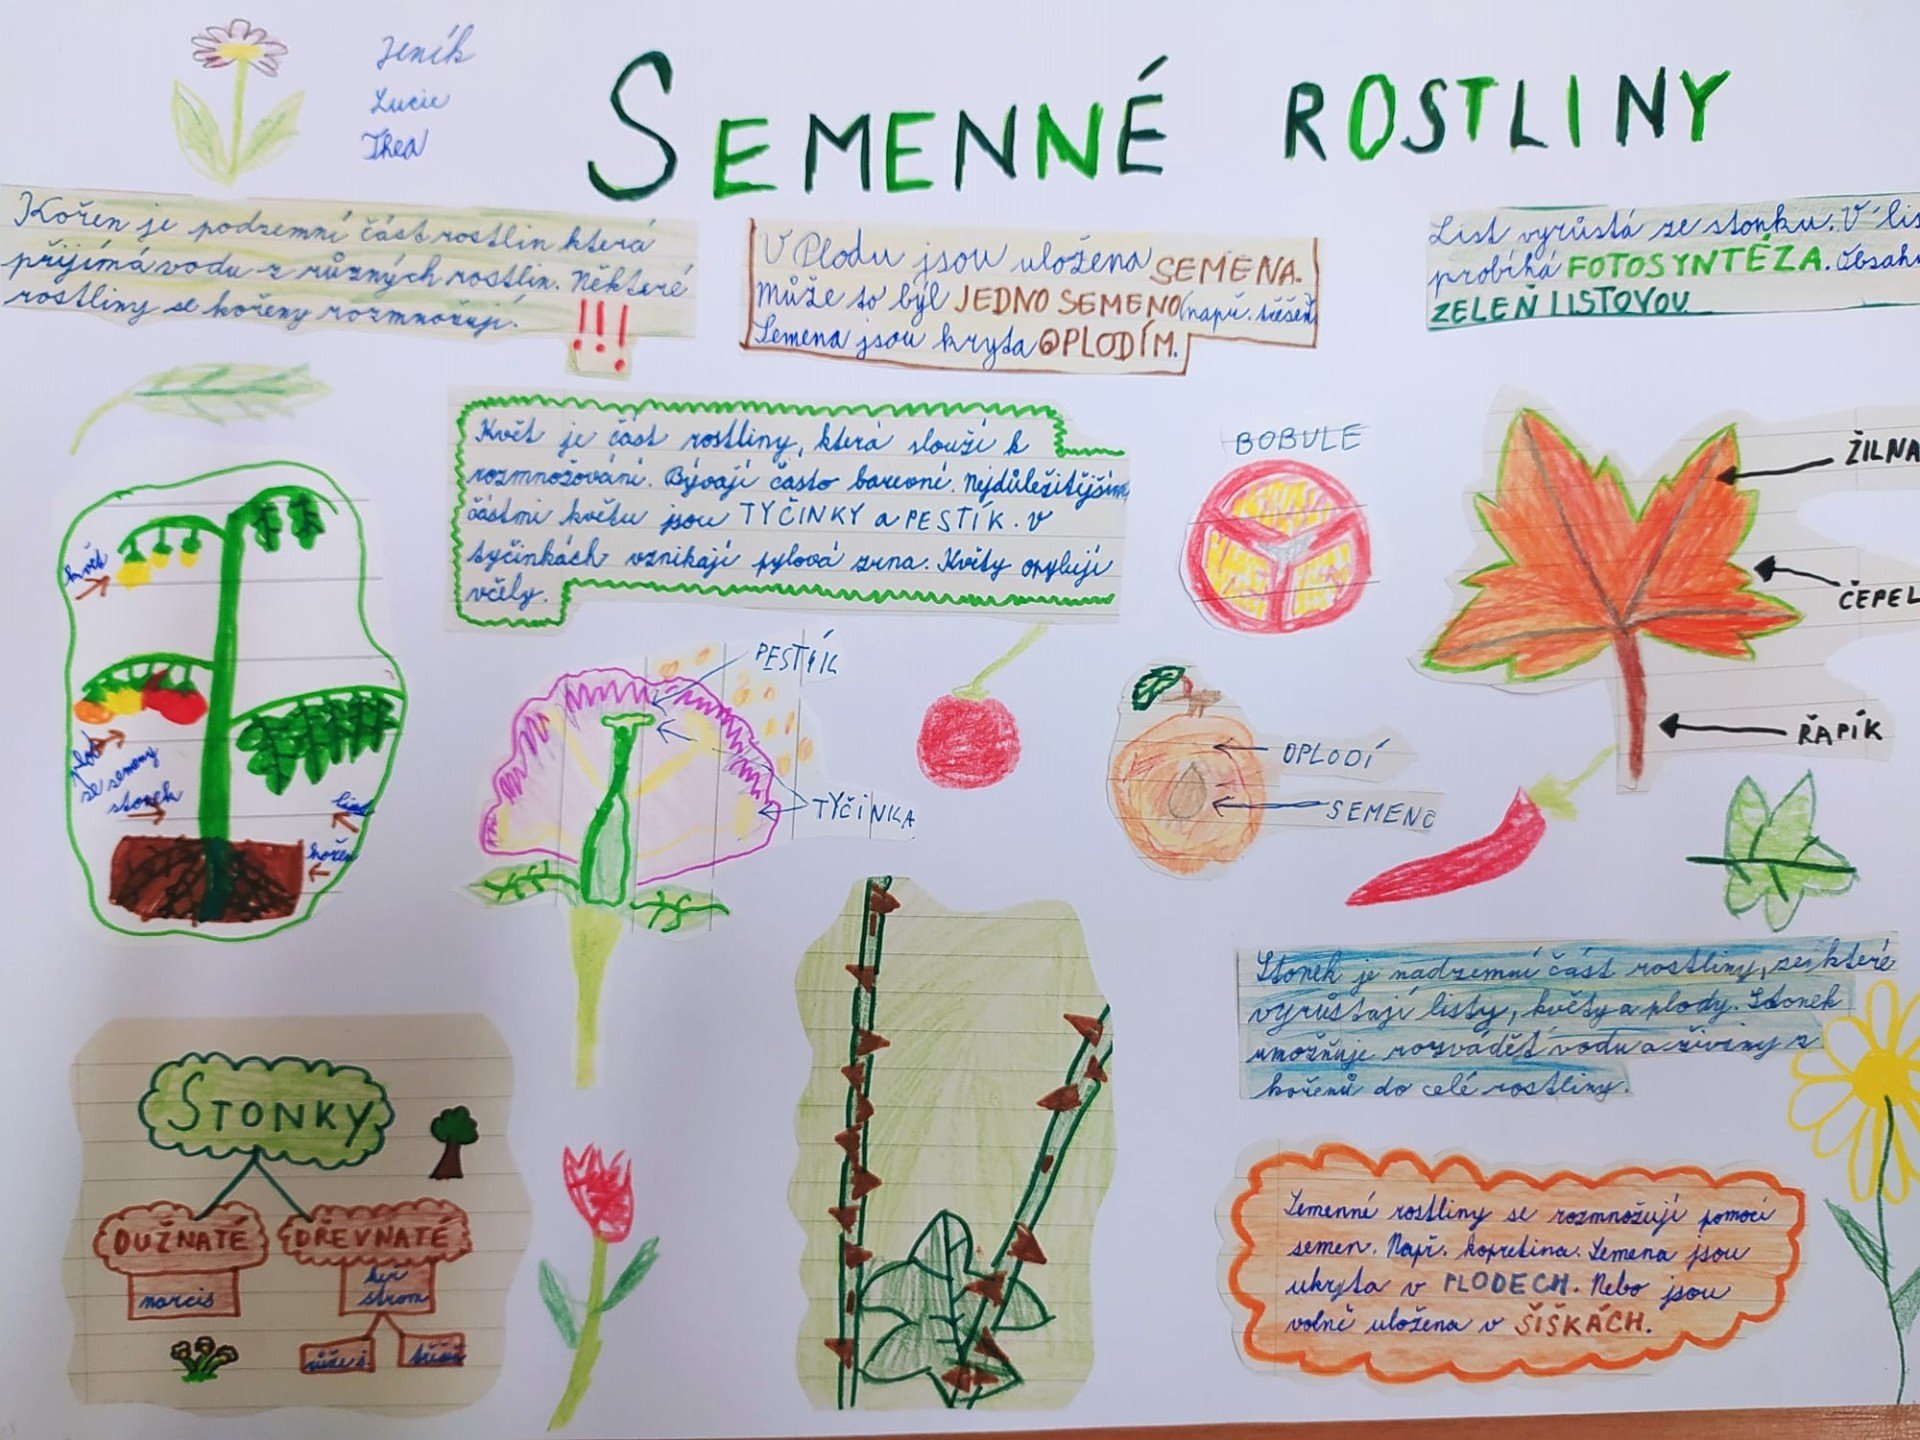 Jeník
Lucie
Thea
SEMENNÉ ROSTLINY
Kořen je podzemní část rostlin která
přijímá vodu z různých rostlin. Některé
rostliny se kořeny rozmnožují.
!!!
V Plodu jsou uložena SEMENA.
Může to být JEDNO SEMENO (např. třešeň
Semena jsou kryta OPLODÍM.
List vyrůstá ze stonku. V lis
probíhá FOTOSYNTÉZA. Obsahu
ZELEŇ LISTOVOU
Květ je část rostliny, která slouží k
rozmnožování. Bývají často barevní. Nejdůležitějším
částmi květu jsou TYČINKY a PESTÍK. V
tyčinkách vznikají pylová zrna. Květy opylují
včely.
BOBULE
ŽILNA
ČEPEL
ŘAPÍK
květ
plod
se semeny
stonek
list
kořen
PESTÍK
TYČINKA
OPLODÍ
SEMENO
Stonek je nadzemní část rostliny, ze které
vyrůstají listy, květy a plody. Stonek
umožňuje rozvádět vodu a živiny z
kořenů do celé rostliny.
STONKY
DUŽNATÉ
DŘEVNATÉ
narcis
keř
strom
Semenné rostliny se rozmnožují pomocí
semen. Např. kopretina. Semena jsou
ukryta v PLODECH. Nebo jsou
volně uložena v ŠIŠKÁCH.